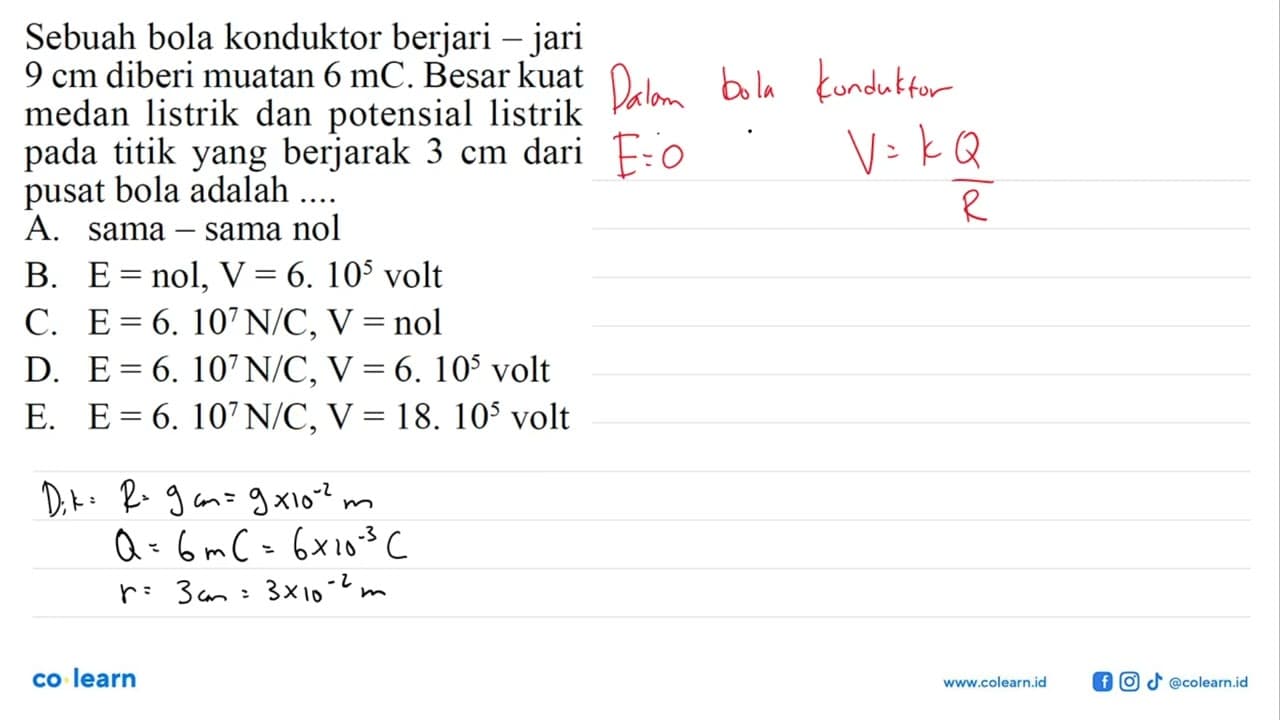 Sebuah bola konduktor berjari – jari
9 cm diberi muatan 6 mC. Besar kuat
medan listrik dan potensial listrik
pada titik yang berjarak 3 cm dari
pusat bola adalah ....
A. sama – sama nol
B. E = nol, V = 6. 10⁵ volt
C. E = 6. 10⁷ N/C, V = nol
D. E = 6. 10⁷ N/C, V = 6. 10⁵ volt
E. E = 6. 10⁷ N/C, V = 18. 10⁵ volt
Dalam bola konduktor
E = 0 V = k Q
R
Dik = R = 9 cm = 9 × 10⁻² m
Q = 6 mC = 6 × 10⁻³ C
r = 3 cm = 3 × 10⁻² m
co learn
www.colearn.id @colearn.id